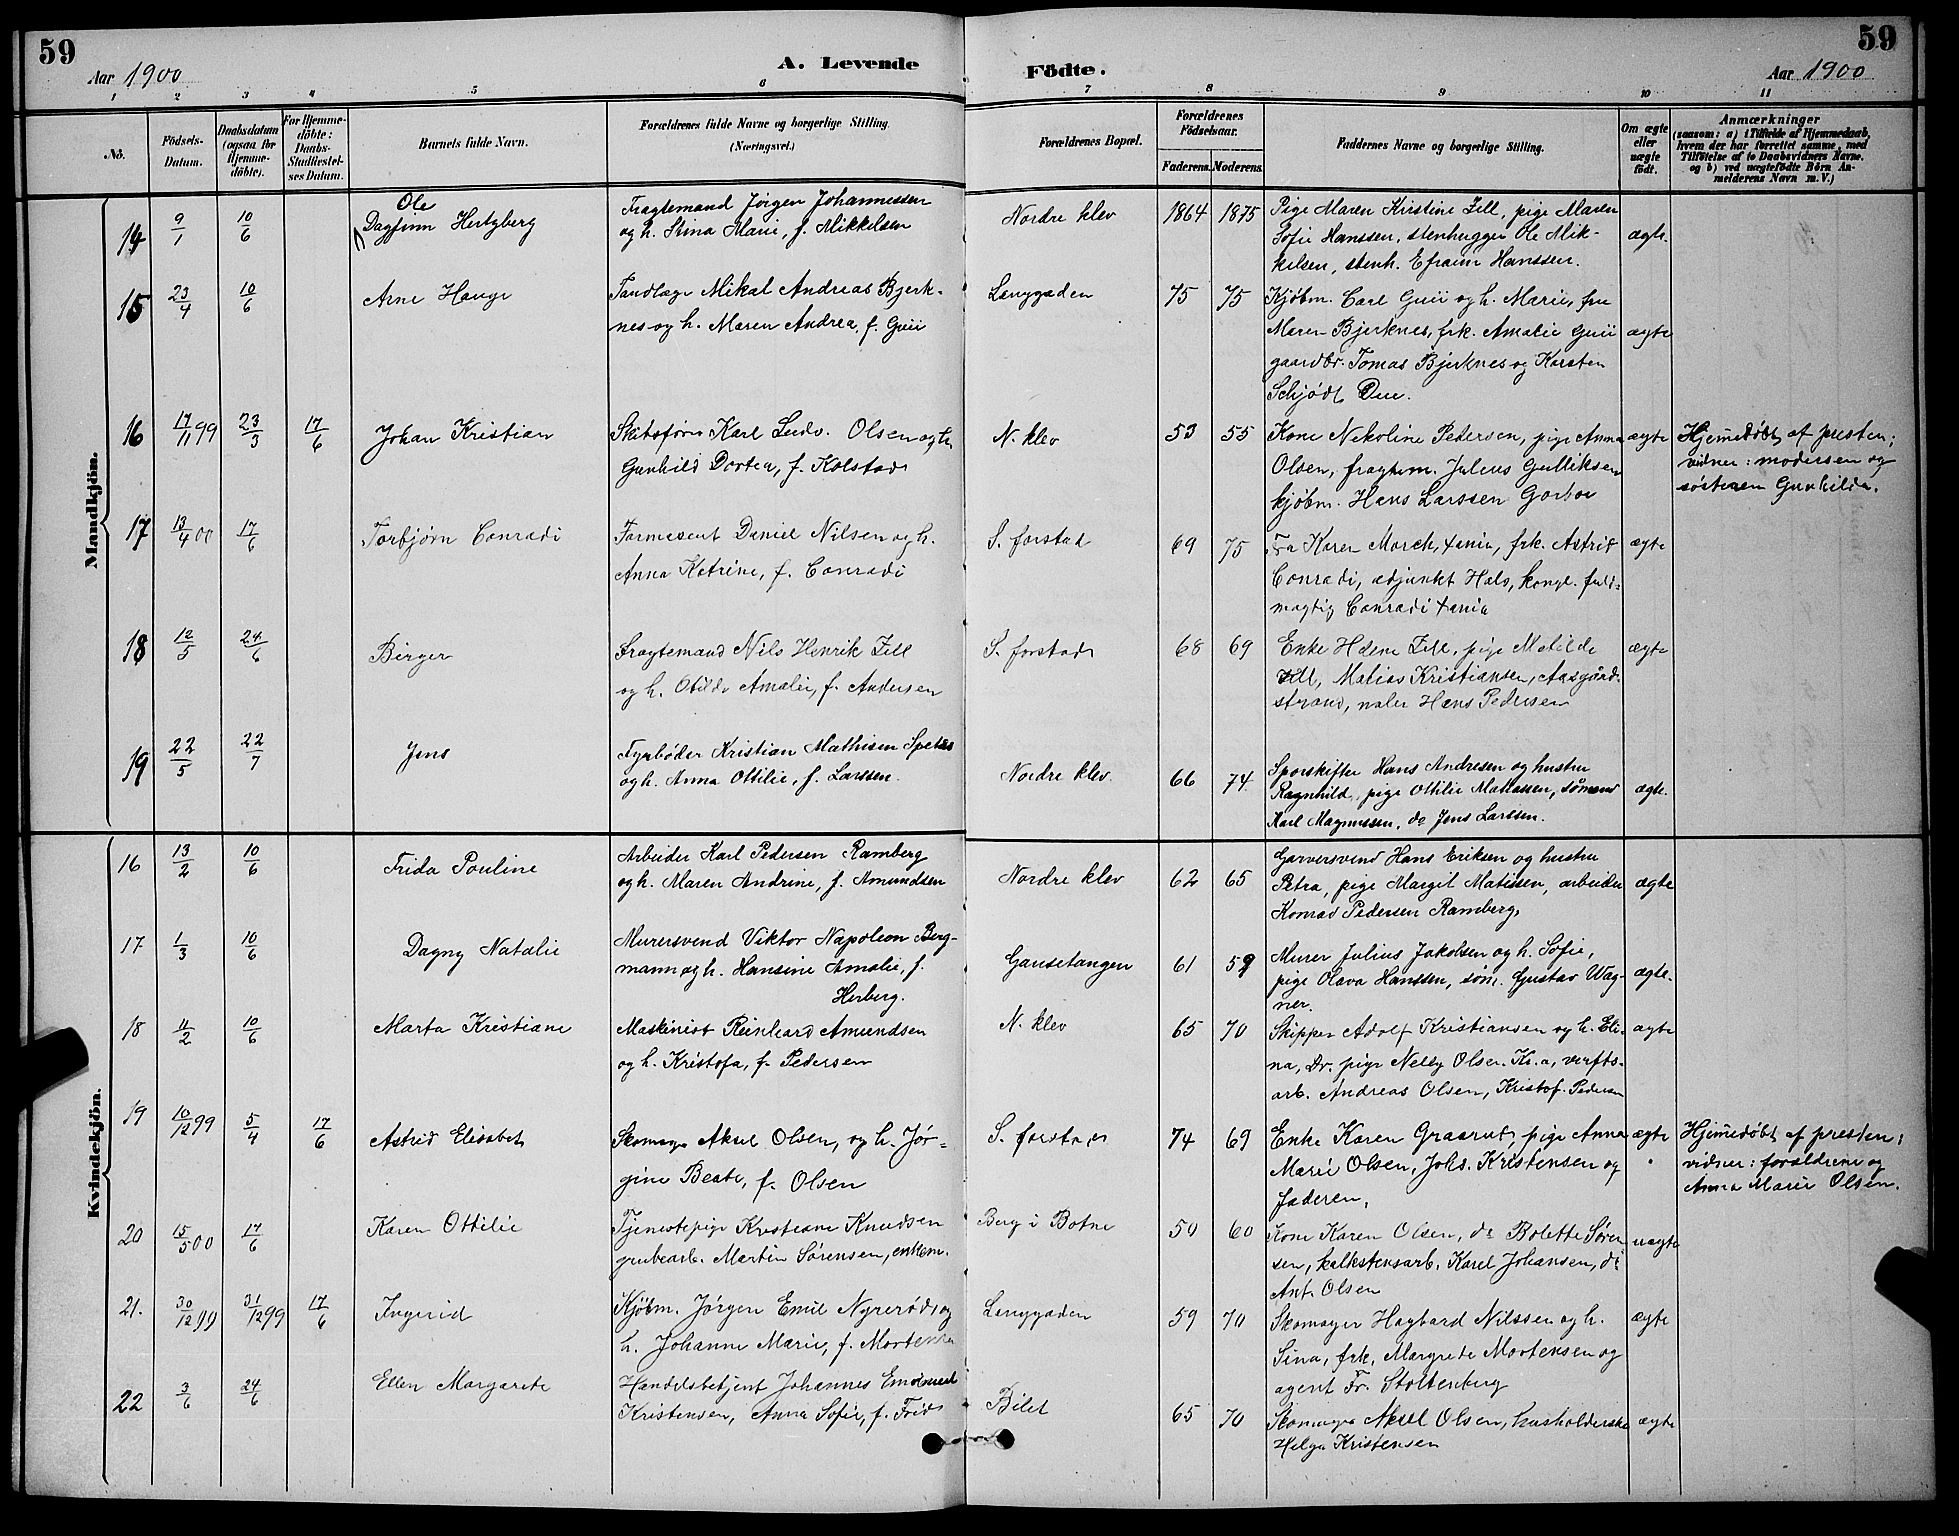 59
59
Aar 1900
A. Levende
Födte.
Aar 1900
1 2 3 4 5 6 7 8 9 10 11
No.
Födsels-
Datum.
Daabsdatum
(ogsaa for
Hjemme-
döbte).
For Hjemme-
döbte:
Daabs-
Stadfæstel-
ses Datum.
Barnets fulde Navn.
Forældrenes fulde Navne og borgerlige Stilling.
(Næringsvei.)
Forældrenes Bopæl.
Forældrenes
Födselsaar.
Faderens. Moderens.
Faddernes Navne og borgerlige Stilling.
Om ægte
eller
uægte
födt.
Anmærkninger
(saasom: a) i Tilfælde af Hjemmedaab,
hvem der har forrettet samme, med
Tilföielse af to Daabsvidners Navne.
og b) ved uægtefödte Börn An-
melderens Navn m.V.)
Mandkjön.
14 9/1 10/6
Ole
Dagfinn Hertzberg
Fragtemand Jörgen Johannessen
og h. Stina Marie, f. Mikkelsen
Nordre klev
1864 1875
Pige Maren Kristine Zill, pige Maren
Sofie Hanssen, stenhugger Ole Mik-
kelsen, stenh. Efraim Hanssen.
ægte.
15 23/4 10/6
Arne Hauge
Tandlæge Mikal Andreas Bjerk-
nes og h. Maren Andrea, f. Guii
Langgaden
75 75
Kjöbm. Carl Guii og h. Marie, fru
Maren Bjerknes, frk. Amalie Guii
gaardbr. Tomas Bjerknes og Karsten
Schjødt Due.
ægte
16 17/11 99 23/3 17/6
Johan Kristian
Skibsfører Karl Ludv. Olsen og h.
Gunhild Dortea, f. Kolstad
N. klev
53 55
Kone Nikoline Pedersen, pige Anna
Olsen, fragtem. Julius Gulliksen
kjöbm. Hans Larssen Garboe
ægte
Hjemedøbt af presten;
vidner: moderen og
søsteren Gunhilda.
17 13/4 00 17/6
Torbjørn Conradi
Farmesent Daniel Nilsen og h.
Anna Katrine, f. Conradi
S. forstad
69 75
Fra Karen Morch, Xania, frk. Astrid
Conradi, adjunkt Hals, kongl. fuld-
mægtig Conradi Xania
ægte
18 12/5 24/6
Birger
Fragtemand Nils Henrik Zill
og h. Otilde Amalie, f. Andersen
S. forstad
68 69
Enke Helene Zill, pige Matilde
Zill, Matias Kristiansen, Aasgård-
strand, maler Hans Pedersen
ægte
19 22/5 22/7
Jens
Fyrbøder Kristian Mathisen Spetås
og h. Anna Ottilie, f. Larssen.
Nordre klev.
66 74
Sporskifter Hans Andresen og hustru
Ragnhild, pige Ottilie Matiassen, sømand
Karl Magnussen, do Jens Larssen.
ægte.
Kvindekjön.
16 13/2 10/6
Frida Pouline
Arbeider Karl Pedersen Ramberg
og h. Maren Andrine, f. Amundsen
Nordre klev
62 65
Garversvend Hans Eriksen og hustru
Petra, pige Margit Matissen, arbeider
Konrad Pedersen Ramberg,
ægte
17 1/3 10/6
Dagny Natalie
Murersvend Viktor Napoleon Berg-
mann og h. Hansine Amalie, f.
Herberg.
Gausetangen
61 59
Murer Julius Jakobsen og h. Sofie,
pige Olava Hanssen, søm. Gustav Wag-
ner.
ægte.
18 11/2 10/6
Marta Kristiane
Maskinist Reinhard Amundsen
og h. Kristofa, f. Pedersen
N. klev
65 70
Skipper Adolf Kristiansen og h. Eli-
na, Dr. pige Nelly Olsen Kr.a, verfts-
arb. Andreas Olsen, Kristof. Pedersen
ægte
19 10/12 99 5/4 17/6
Astrid Elisabet
Skomager Aksel Olsen, og h. Jør-
gine Beate, f. Olsen
S. forstad
74 69
Enke Karen Graarud, pige Anna
Marie Olsen, Johs. Kristensen og
faderen,
ægte
Hjemedøbt af presten;
vidner: forældrene og
Anna Marie Olsen.
20 15/5 00 17/6
Karen Ottilie
Tjenestepige Kristiane Knudsen
grubearb. Martin Sørensen, enkem.
Berg i Botne
50 60
Kone Karen Olsen, do Bolette Søren-
sen, kalkstensarb. Karel Johansen, do
Ant. Olsen
uægte
21. 30/12 99 31/12 99 17/6
Ingerid
Kjøbm. Jørgen Emil Nyrerød og
h. Johanne Marie, f. Mortensen
Langgaden
59 70
Skomager Hagbard Nilssen og h.
Sina, frk. Margrete Mortensen og
agent Fr. Stoltenberg
ægte
22 3/6 24/6
Ellen Margarete
Handelsbetjent Johannes Emanuel
Kristensen, Anna Sofie, f. Frids
Bilet
65 70
Skomager Aksel Olsen, husholderske
Helga Kristensen
ægte